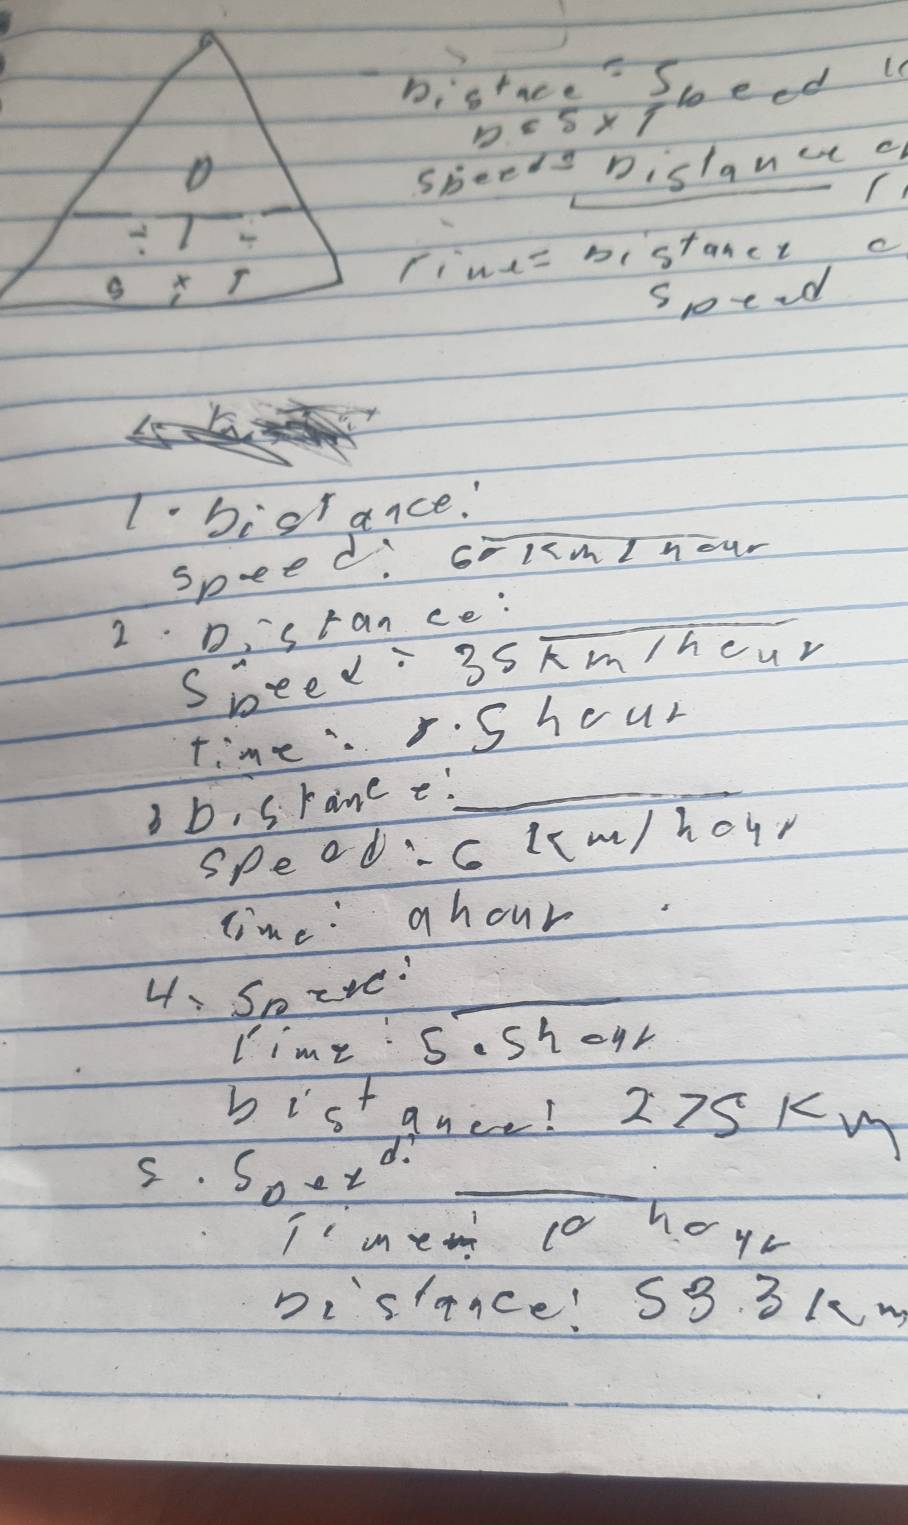 Distace = Speed
D = S x T
Speed = Distance
Time = Distance
Speed
D
÷ | ÷
S x T
1. Distance:
Speed: 60 km/hour
2. Distance:
Speed: 35 km/hour
time: .5 hour
3 Distance:
Speed: 6 km/hour
Time: hour
4. Speed:
Time: 5.5 hour
Distance: 275 Km
5. Speed:
Time: 10 hour
Distance: 53.3 km